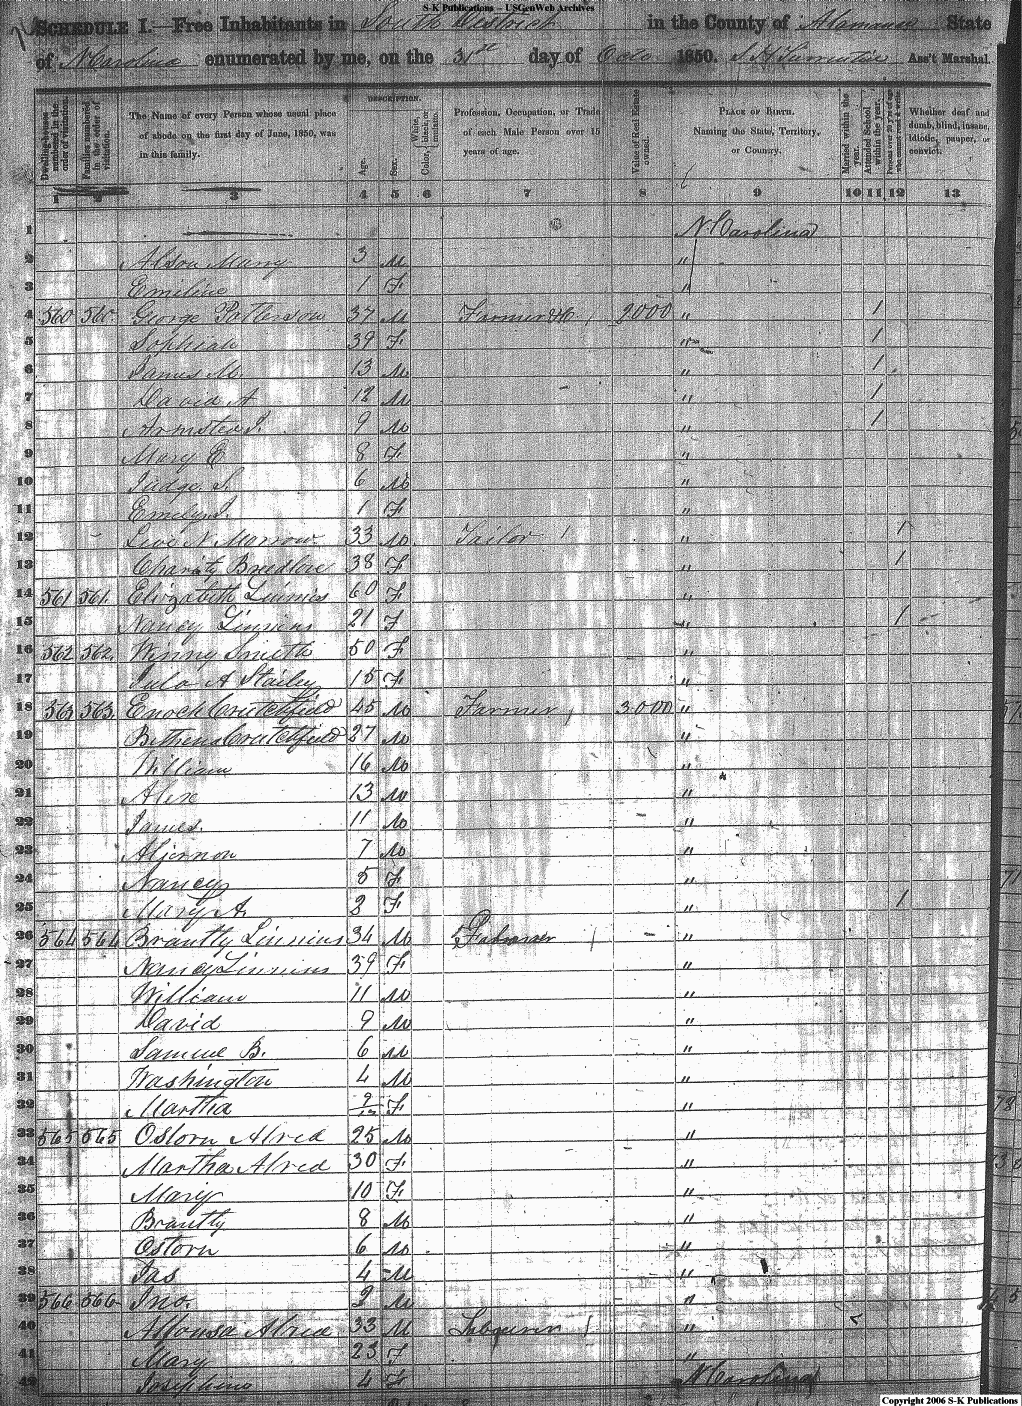 S-K Publications – USGenWeb Archives
SCHEDULE I.—Free Inhabitants in South District in the County of Alamance State
of N Carolina enumerated by me, on the 31st day of Octo 1850. Ass't Marshal.
Dwelling-houses numbered in the order of visitation.
Families numbered in the order of visitation.
The Name of every Person whose usual place of abode on the first day of June, 1850, was in this family.
DESCRIPTION.
Age.
Sex.
Color, White, black, or mulatto.
Profession, Occupation, or Trade of each Male Person over 15 years of age.
Value of Real Estate owned.
PLACE OF BIRTH. Naming the State, Territory, or Country.
Married within the year.
Attended School within the year.
Persons over 20 y'rs of age who cannot read & write.
Whether deaf and dumb, blind, insane, idiotic, pauper, or convict.
1 2 3 4 5 6 7 8 9 10 11 12 13
1 N Carolina
2 Alson Murry 3 M "
3 Emeline 1 F "
4 560 560 George Patterson 37 M Farmer 2000 " 1
5 Sophiah 39 F " 1
6 James M. 13 M " 1
7 David A 12 M " 1
8 Armstead J. 9 M " 1
9 Mary E 8 F "
10 Judge S. 6 M "
11 Emely J. 1 F "
12 Levi N Morrow 33 M Tailor " 1
13 Charity Breedlove 38 F " 1
14 561 561 Elizabeth Linnins 60 F "
15 Nancy Linnins 21 F " 1
16 562 562 Winny Smith 50 F "
17 A Staily 15 F "
18 563 563 Enoch Crutchfield 45 M Farmer 3000 "
19 Crutchfield 27 M "
20 William 16 M "
21 Alex 13 M "
22 James 11 M "
23 Aljernon 7 M "
24 Nancy 5 F "
25 Mary A. 2 F " 1
26 564 564 Brantly Linnins 34 M "
27 Nancy Linnins 39 F "
28 William 11 M "
29 David 9 M "
30 Samuel B. 6 M "
31 Washington 4 M "
32 Martha 9/12 F "
33 565 565 Osborn Alred 25 M "
34 Martha Alred 30 F "
35 Mary 10 F "
36 Brantly 8 M "
37 Osborn 6 M "
38 Jas 4 M "
39 566 566 Jno. 2 M "
40 Alfonsa Alred 33 M Labourer "
41 Mary 23 F "
42 Josephine 4 F N Carolina
Copyright 2006 S-K Publications